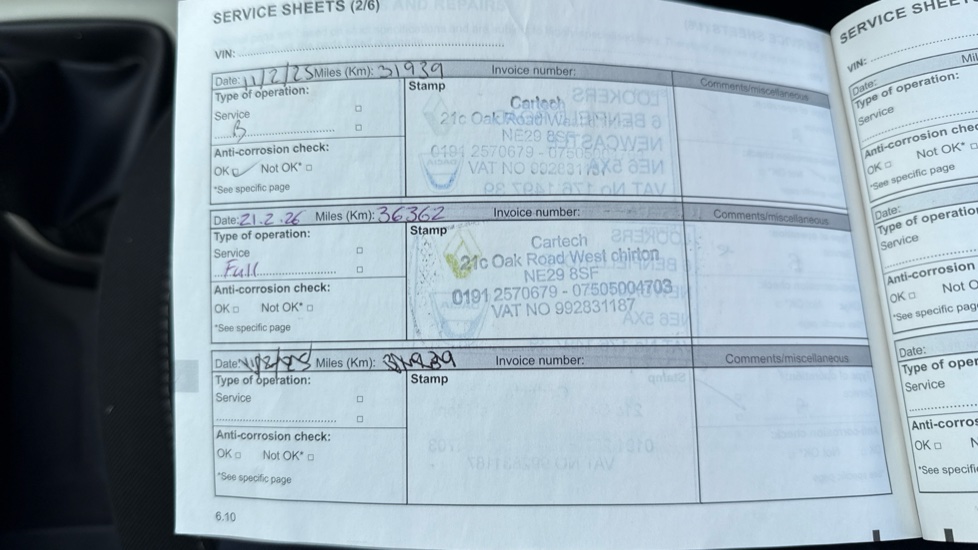 SERVICE SHEETS (2/6)
VIN:
Date: 11/2/25 Miles (Km): 31939 Invoice number:
Type of operation: Stamp Comments/miscellaneous
Service
B
Cartech
21c Oak Road
NE29 8SF
0191 2570679 - 07505
VAT NO 992831187
Anti-corrosion check:
OK Not OK*
*See specific page
Date: 21.2.26 Miles (Km): 36362 Invoice number: Comments/miscellaneous
Type of operation: Stamp
Service
Full
Cartech
21c Oak Road West chirton
NE29 8SF
0191 2570679 - 07505004703
VAT NO 992831187
Anti-corrosion check:
OK Not OK*
*See specific page
Date: Miles (Km): Invoice number: Comments/miscellaneous
Type of operation: Stamp
Service
Anti-corrosion check:
OK Not OK*
*See specific page
6.10
SERVICE SHEET
VIN:
Date: Mil
Type of operation:
Service
Anti-corrosion chec
OK Not OK*
*See specific page
Date:
Type of operatio
Service
Anti-corrosion
OK Not O
*See specific pag
Date:
Type of oper
Service
Anti-corros
OK N
*See specifi